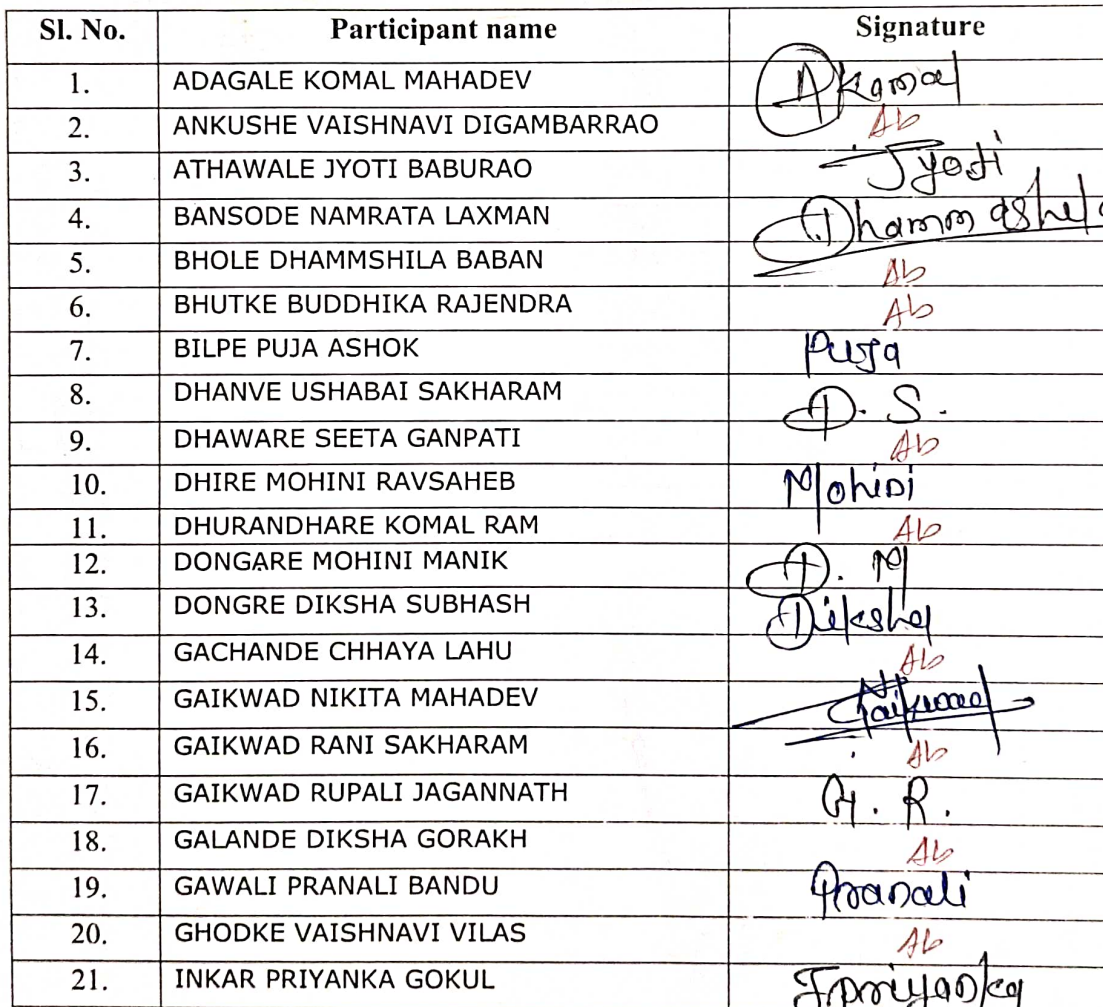 Sl. No. Participant name Signature
1. ADAGALE KOMAL MAHADEV AKomal
2. ANKUSHE VAISHNAVI DIGAMBARRAO Ab
3. ATHAWALE JYOTI BABURAO Jyoti
4. BANSODE NAMRATA LAXMAN Dhammashela
5. BHOLE DHAMMSHILA BABAN Ab
6. BHUTKE BUDDHIKA RAJENDRA Ab
7. BILPE PUJA ASHOK Puja
8. DHANVE USHABAI SAKHARAM D. S.
9. DHAWARE SEETA GANPATI Ab
10. DHIRE MOHINI RAVSAHEB Mohini
11. DHURANDHARE KOMAL RAM Ab
12. DONGARE MOHINI MANIK D. M
13. DONGRE DIKSHA SUBHASH Diksha
14. GACHANDE CHHAYA LAHU Ab
15. GAIKWAD NIKITA MAHADEV Gaikwad
16. GAIKWAD RANI SAKHARAM Ab
17. GAIKWAD RUPALI JAGANNATH G. R.
18. GALANDE DIKSHA GORAKH Ab
19. GAWALI PRANALI BANDU Pranali
20. GHODKE VAISHNAVI VILAS Ab
21. INKAR PRIYANKA GOKUL I priyanka